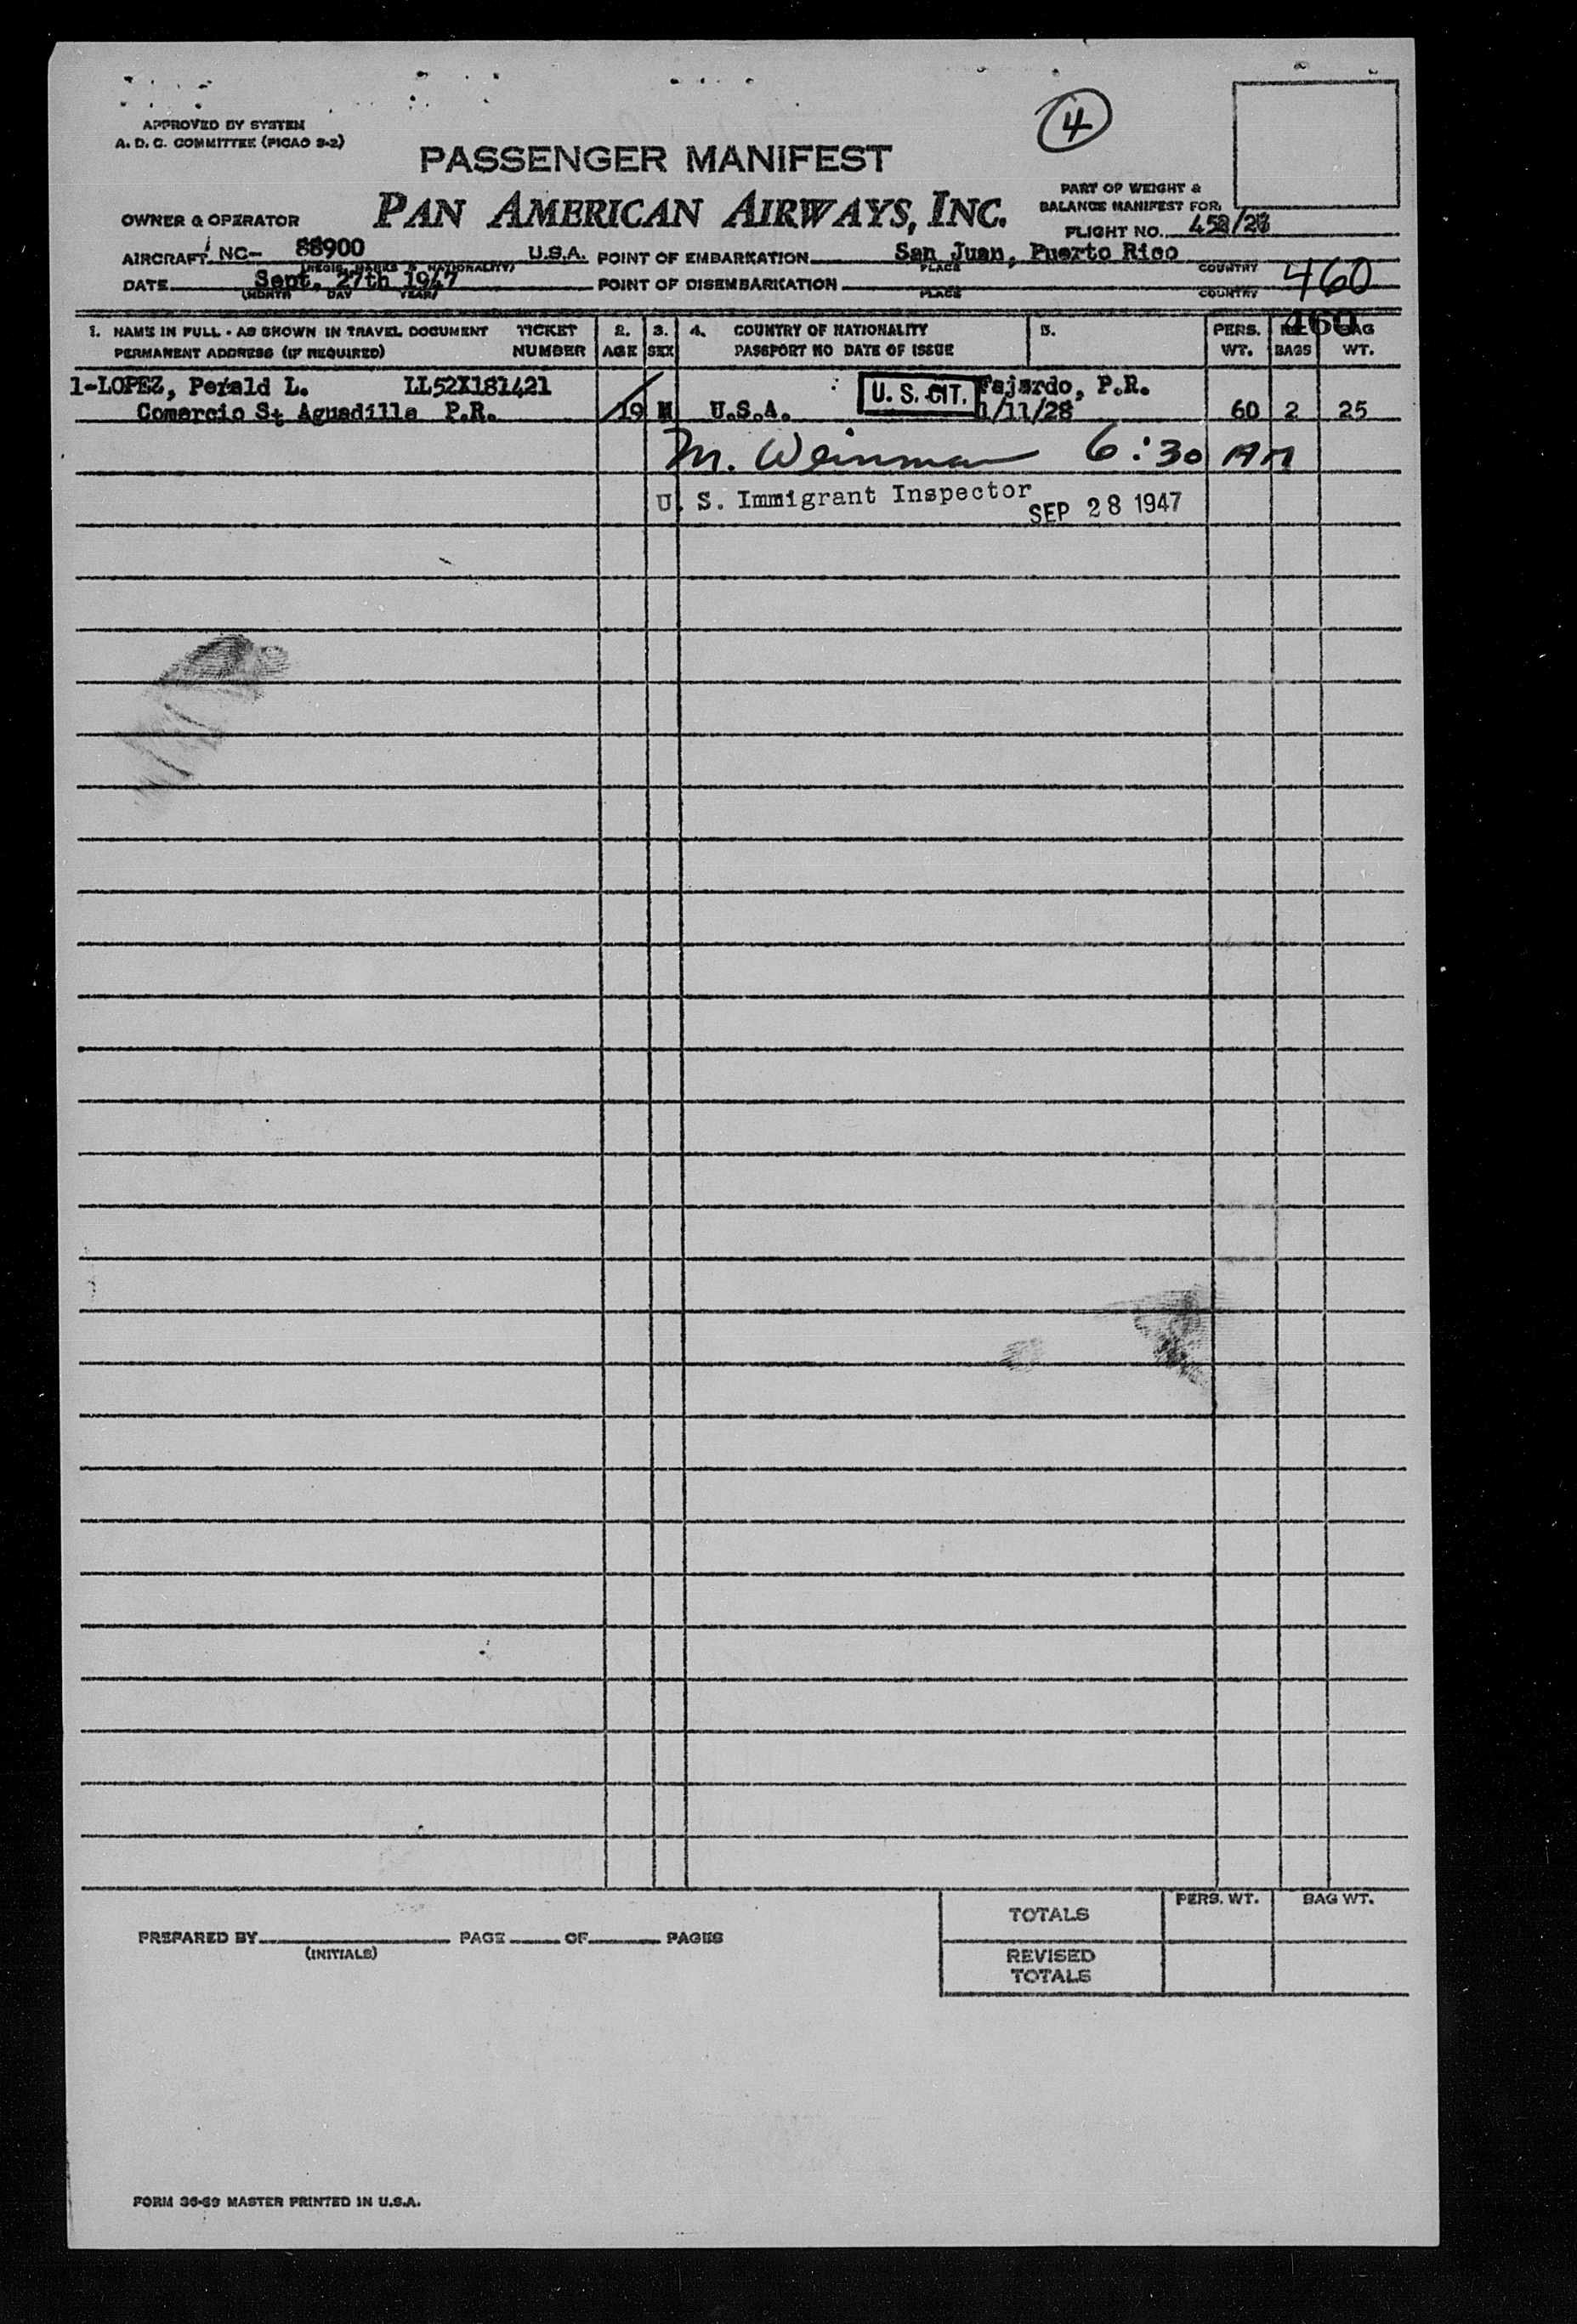 APPROVED BY SYSTEM
A. D. C. COMMITTEE (PICAO S-2)
4
PASSENGER MANIFEST
PAN AMERICAN AIRWAYS, INC.
PART OF WEIGHT &
BALANCE MANIFEST FOR
OWNER & OPERATOR
FLIGHT NO.
AIRCRAFT NC- 88900 U.S.A. POINT OF EMBARKATION San Juan, Puerto Rico
(REGIS. MARKS & NATIONALITY) PLACE COUNTRY
DATE Sept. 27th 1947 POINT OF DISEMBARKATION 460
(MONTH DAY YEAR) PLACE COUNTRY
460
1. NAME IN FULL - AS SHOWN IN TRAVEL DOCUMENT TICKET 2. 3. 4. COUNTRY OF NATIONALITY 5. PERS. BAG
PERMANENT ADDRESS (IF REQUIRED) NUMBER AGE SEX PASSPORT NO DATE OF ISSUE WT. BAGS WT.
1-LOPEZ, Perald L. LL52X181421 U. S. CIT. Fajardo, P.R.
Comercio St Aguadilla P.R. 19 M U.S.A. 1/11/28 60 2 25
M. Weinman 6:30 AM
U. S. Immigrant Inspector
SEP 28 1947
PERS. WT. BAG WT.
TOTALS
PREPARED BY PAGE OF PAGES
(INITIALS)
REVISED
TOTALS
FORM 36-69 MASTER PRINTED IN U.S.A.